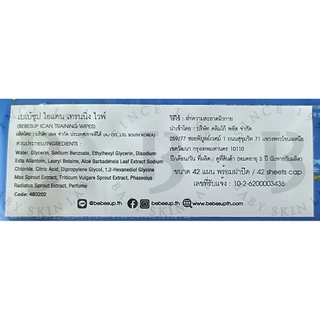 เบเบ้ซุป ไอแคน เทรนนิ่ง ไวพ์
(BEBESUP ICAN TRAINING WIPES)
ส่วนประกอบ/INGREDIENTS :
Water, Glycerin, Sodium Benzoate, Ethylhexyl Glycerin, Disodium
Edta Allantoin, Lauryl Betaine, Aloe Barbadensis Leaf Extract Sodium
Chloride, Citric Acid, Dipropylene Glycol, 1,2-Hexanediol Glycine
Max Sprout Extract, Triticum Vulgare Sprout Extract, Phaseolus
Radiatus Sprout Extract, Perfume
Code: 480202
วิธีใช้ : ทำความสะอาดผิวกาย
นำเข้าโดย : บริษัท คลิมิกี้ พลัส จำกัด
259/77 ซอยพิบูลย์เวศม์ 1 ถนนสุขุมวิท 71 แขวงพระโขนงเหนือ
เขตวัฒนา กรุงเทพมหานคร 10110
ขนาด 42 แผ่น พร้อมฝาปิด / 42 sheets cap
เลขที่ใบรับแจ้ง : 10-2-6200003436
@bebesup_th @bebesup.th www.bebesupth.com